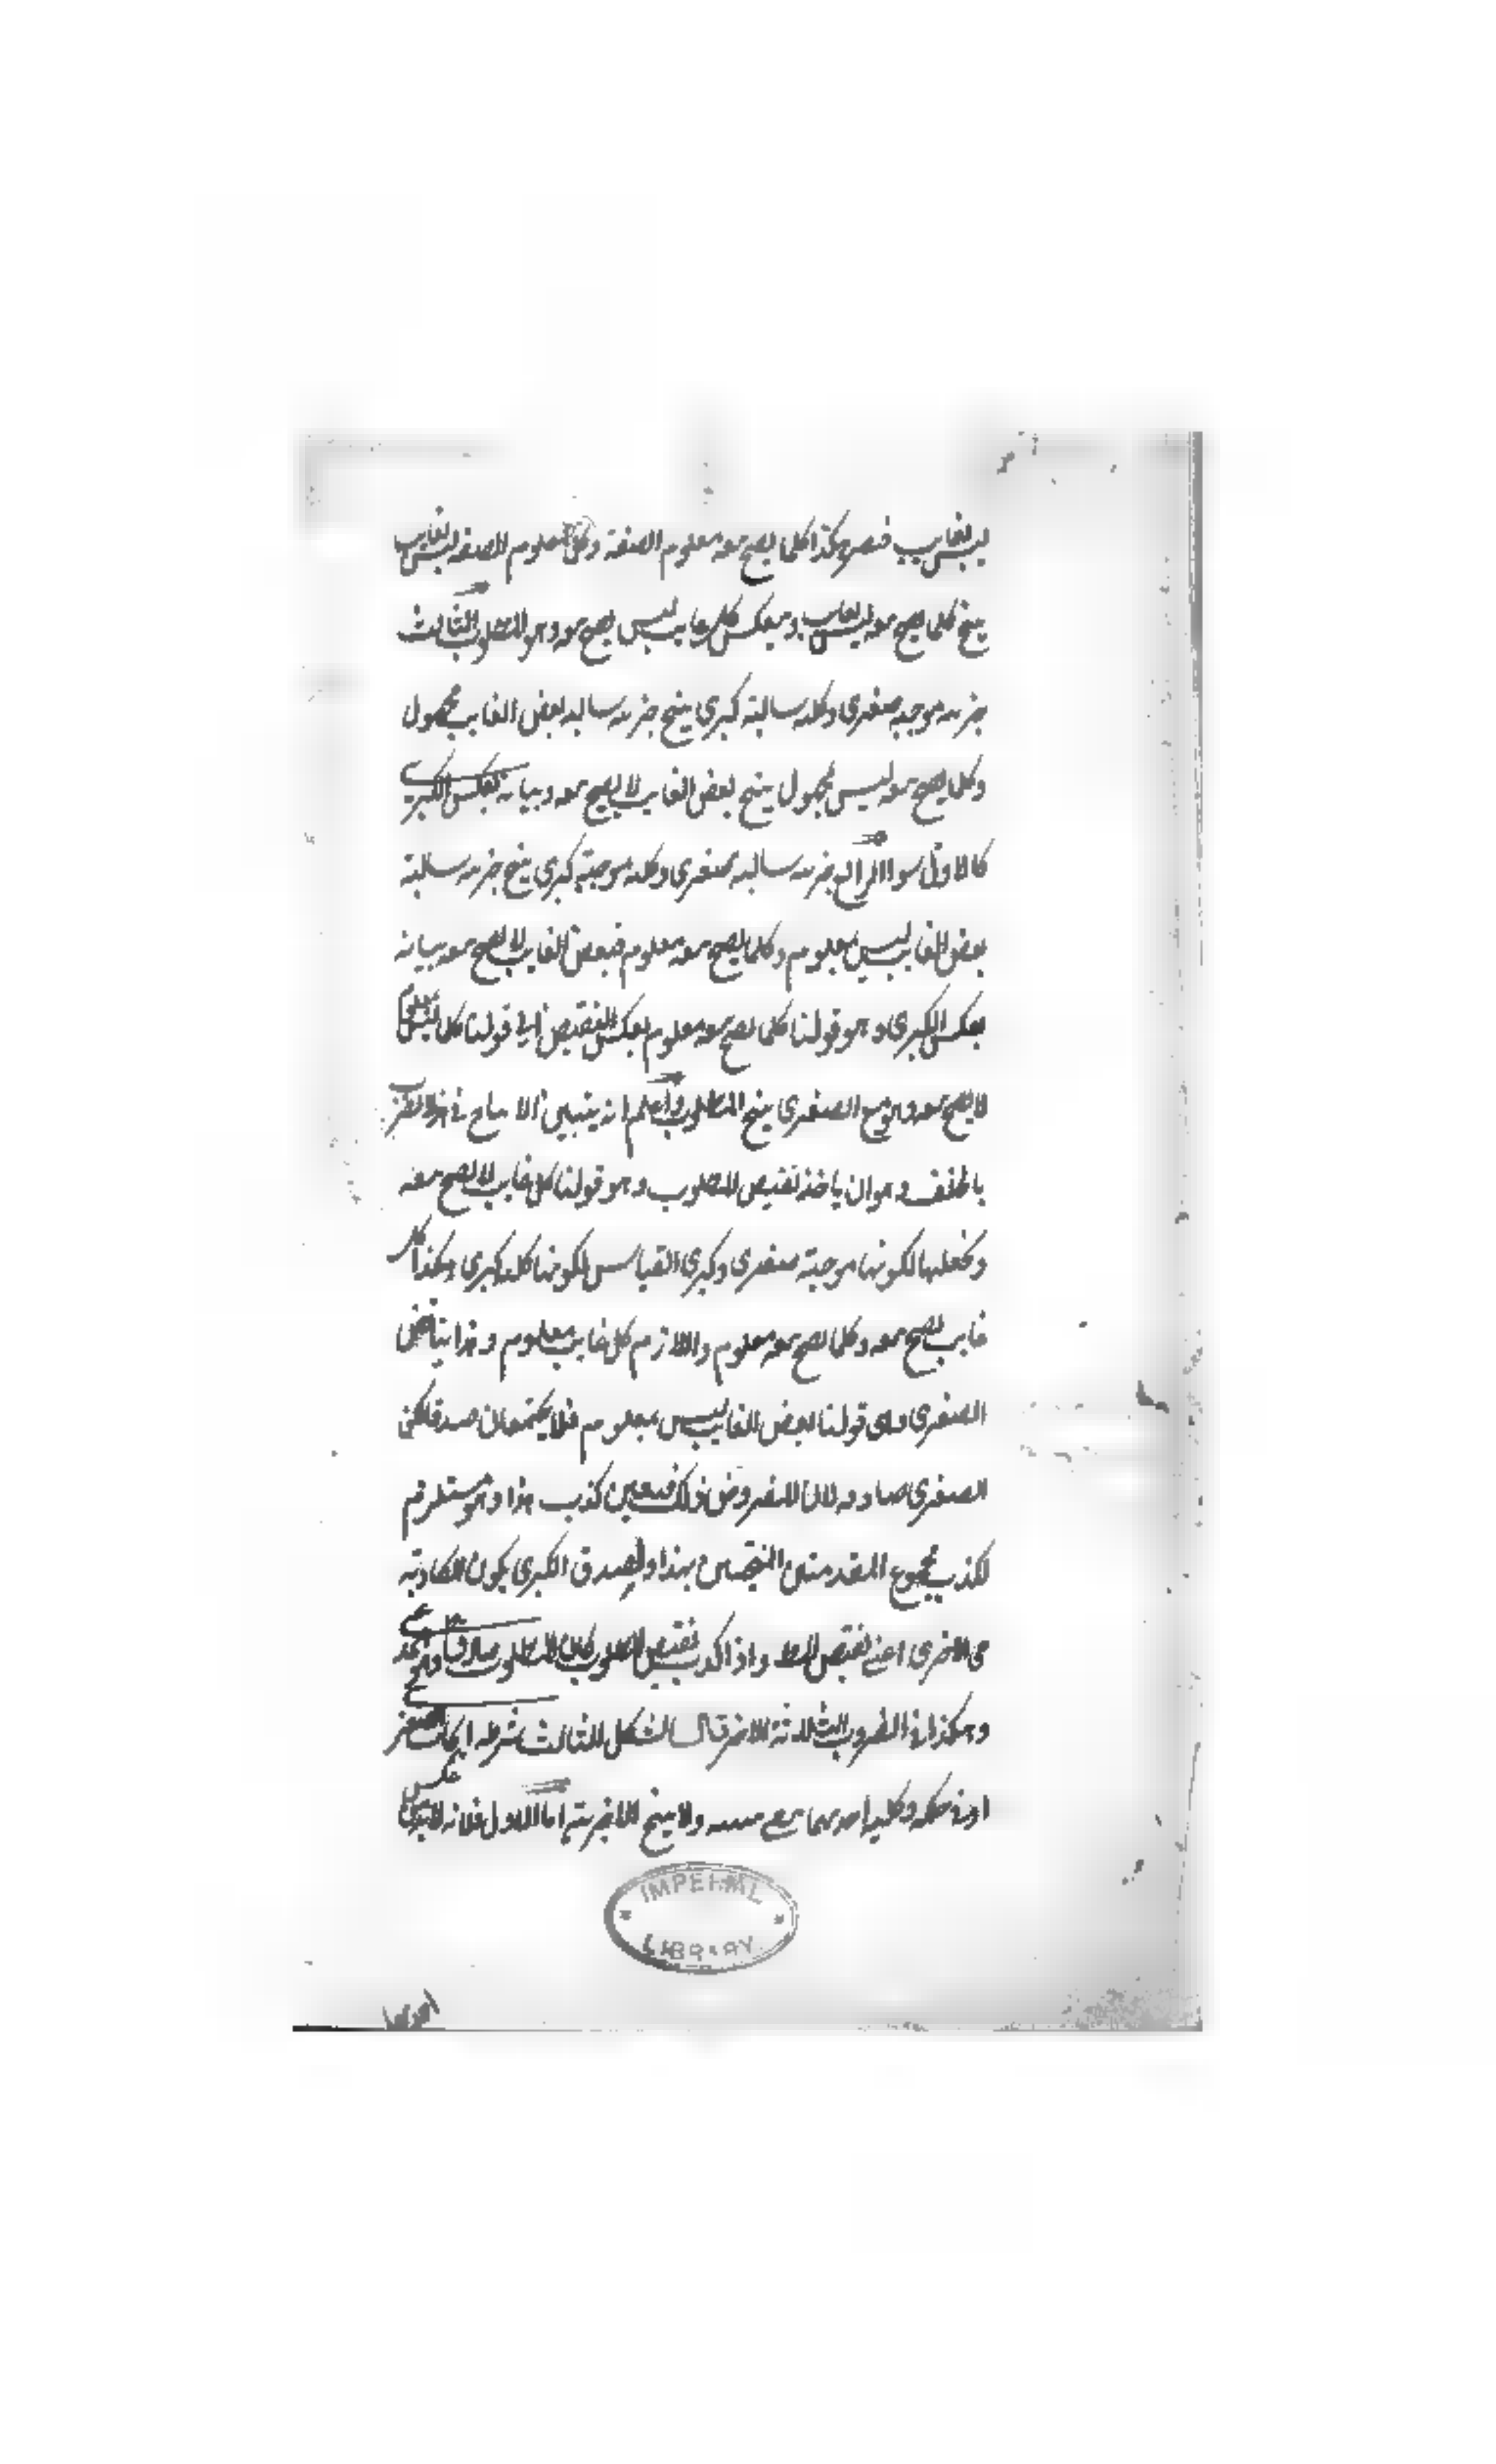 ليس بغايب فتصير هكذا كلما يصح بيعه معلوم الصفة وكل معلوم الصفة ليس بغايب
ينتج كلما يصح بيعه ليس بغايب وينعكس كل غايب ليس يصح بيعه وهو المطلوب الثالث
جزئيه موجبه صغرى وكليه سالبة كبرى ينتج جزئيه سالبه بعض الغايب مجهول
وكل يصح بيعه ليس مجهول ينتج بعض الغايب لا يصح بيعه وبيانه بعكس الكبرى
كالاول سوا الرابع جزئيه سالبه صغرى وكليه موجبة كبرى ينتج جزئيه سالبة
بعض الغايب ليس بمعلوم وكلما يصح بيعه معلوم فبعض الغايب لا يصح بيعه بيانه
بعكس الكبرى وهو قولنا كلما يصح بيعه معلوم بعكس النقيض الى قولنا كل ليس معلوم
لا يصح بيعه وهو مع الصغرى ينتج المطلوب واعلم انه يتبين الانتاج في هذا الضرب
بالخلف وهو ان ياخذ نقيض المطلوب وهو قولنا كل غايب يصح بيعه
وتجعلها لكونها موجبة صغرى وكبرى القياس لكونها كليه كبرى هكذا كل
غايب يصح بيعه وكلما يصح بيعه معلوم واللازم كل غايب معلوم وهذا يناقض
الصغرى وهي قولنا بعض الغايب ليس بمعلوم فلا يجتمعان صدقا لكن
الصغرى صادقه لان المفروض ذلك فتعين كذب هذا وهو مستلزم
لكذب مجموع المقدمتين المنتجتين بهذا ولصدق الكبرى يكون الكاذبه
هي الاخرى اعني نقيض المط واذا كذب نقيض المطلوب كان المطلوب صادقا وهو المدعى
وهكذا في الضروب الثلاثة الاخر قال الشكل الثالث شرطه ايجاب الصغرى
او في حكمه وكلية احديهما ولا ينتج الا جزئية اما الاول فلانه لا بد من عكس
احديهما
IMPERIAL
LIBRARY